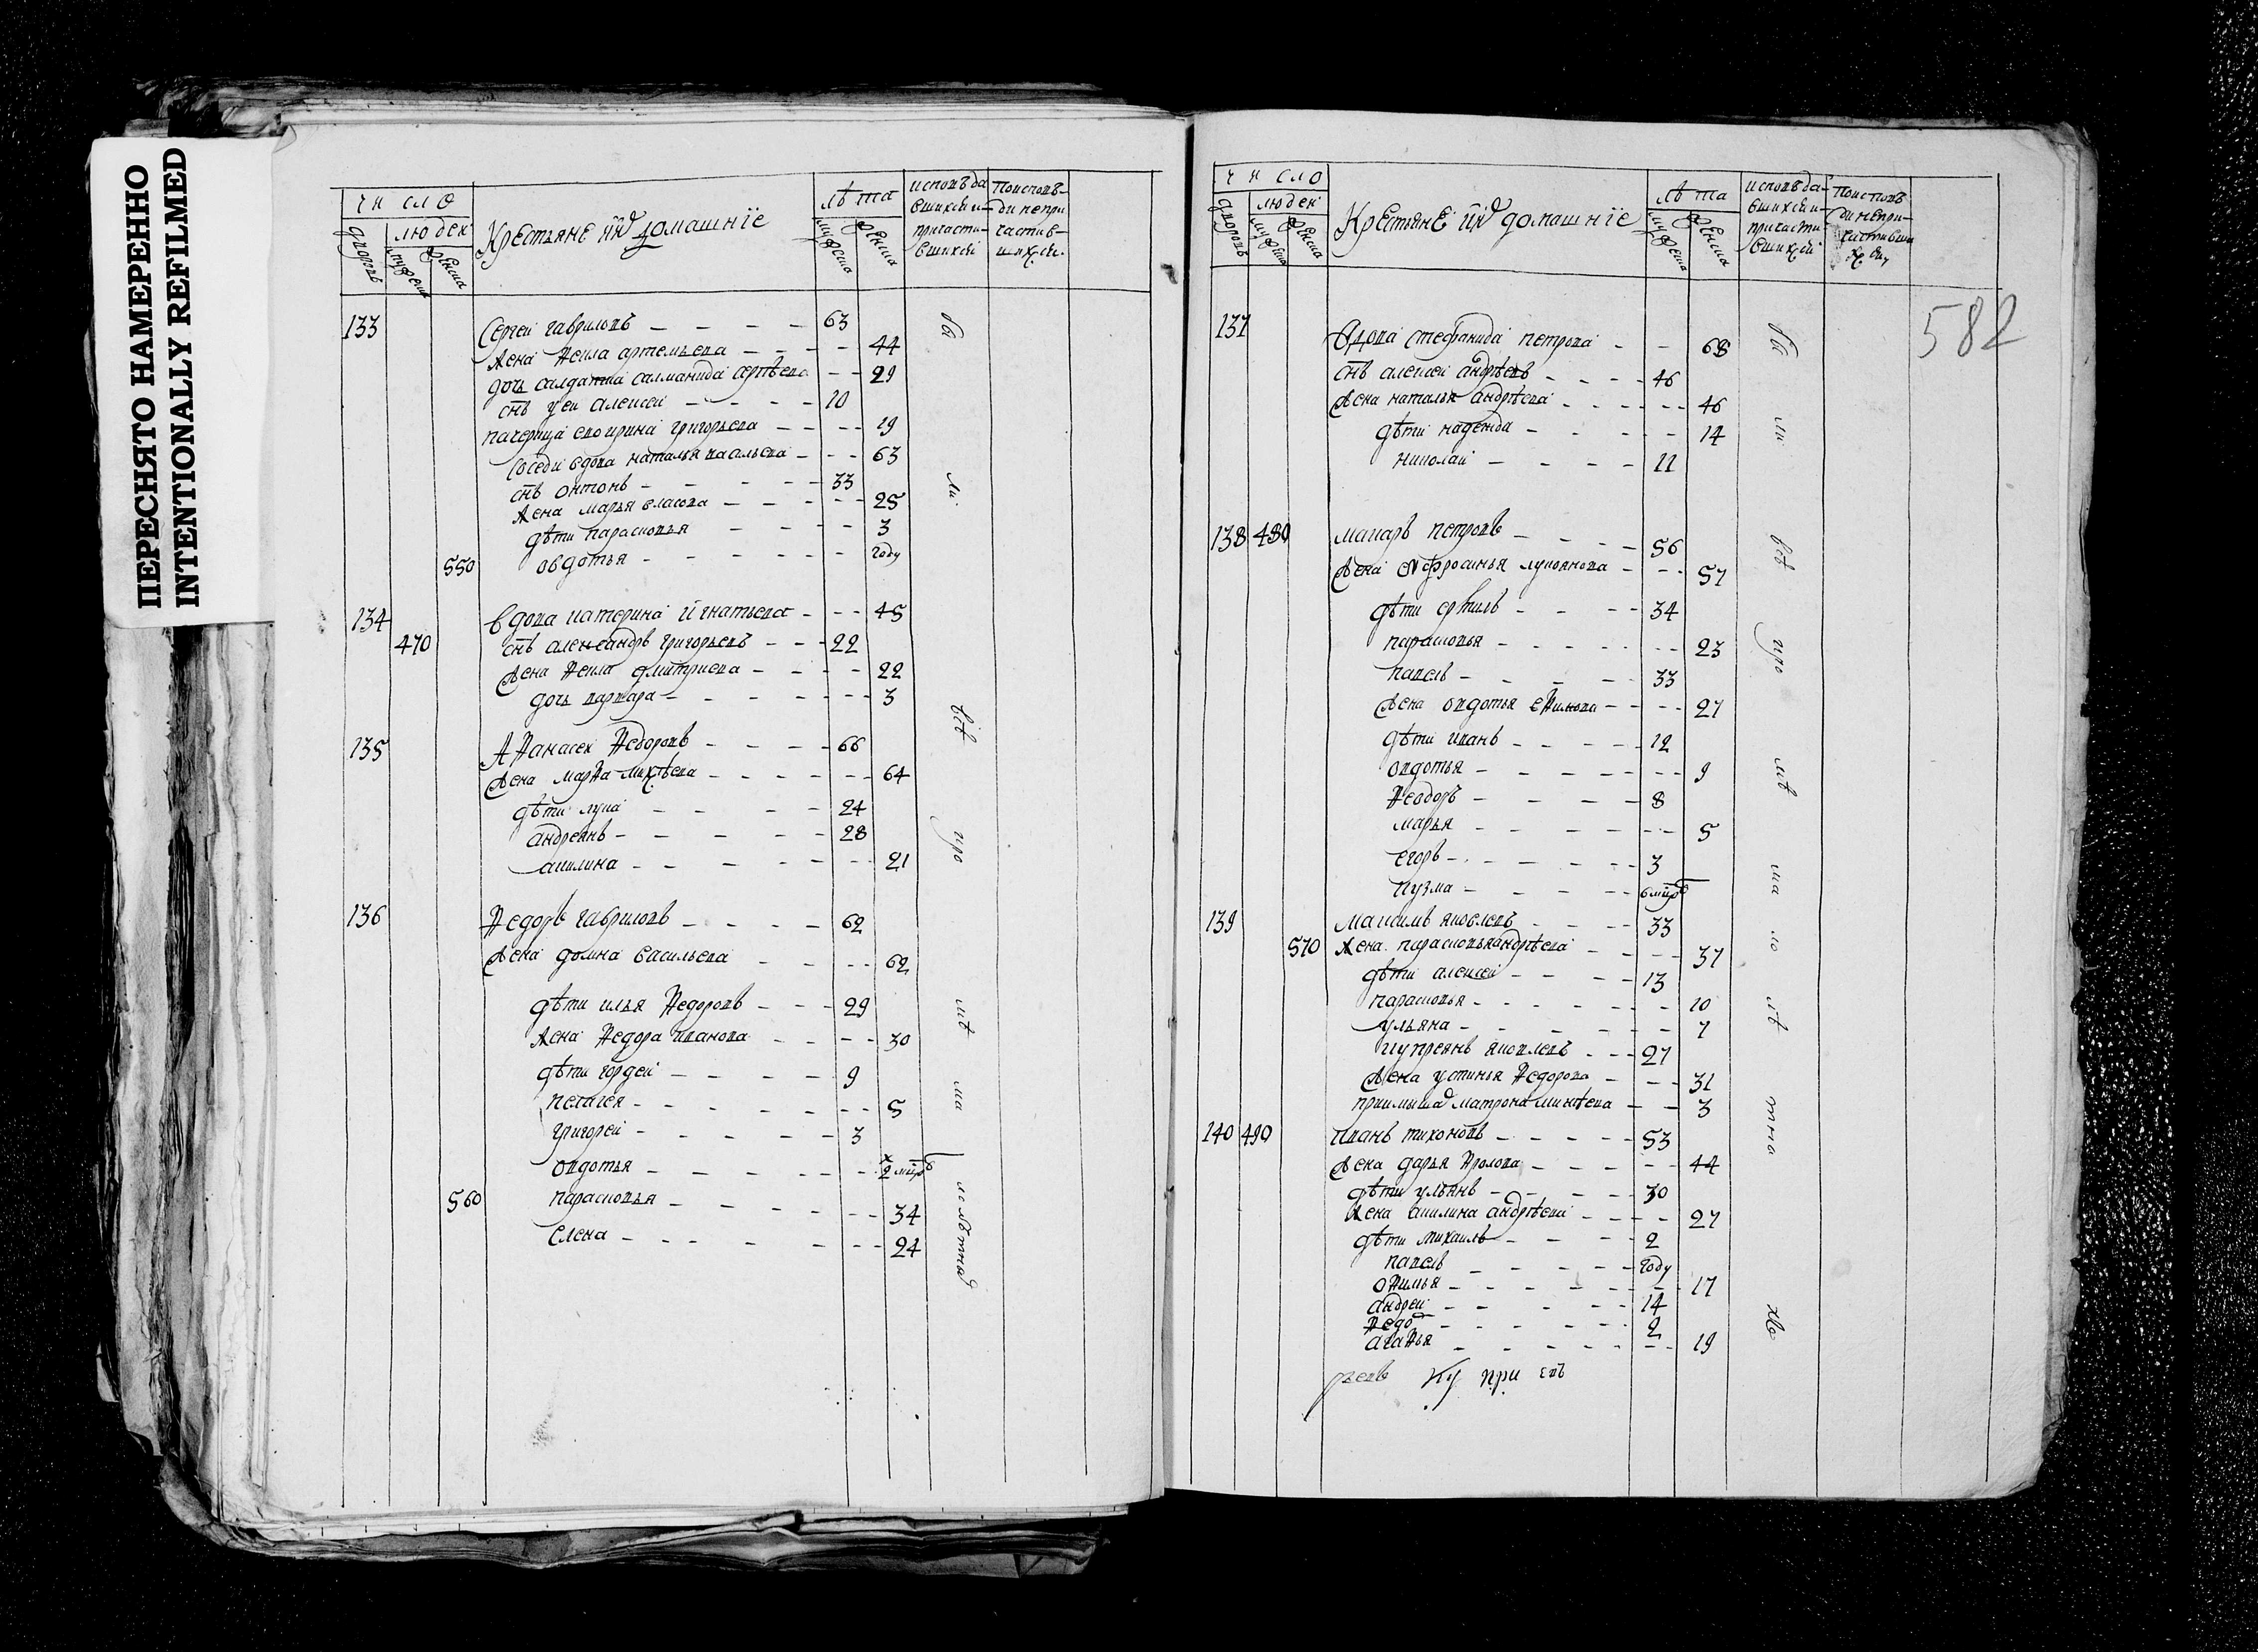 ПЕРЕСНЯТО НАМЕРЕННО
INTENTIONALLY REFILMED
число
людей
дворовъ
мужеска
женска
Крестьяне ихъ домашнїе
лѣта
мужеска
женска
исповѣда
вшихся и
причасти
вшихся
по исповѣ-
ди непри
частив-
шихся
133 Сергеи гавриловъ 63
жена Ѳекла артемьева 44
дочь салдатка саломанида сергѣева 29
снъ у еи алексеи 10
григорьева 19
соседи вдова наталья 63
снъ онтонъ 33
жена марья власова 25
дѣти парасковья 3
550 овдотья году
134 вдова катерина игнатьева 45
470 снъ александръ григорьевъ 22
жена Ѳекла дмитриева 22
дочь варвара 3
135 аѲанасеи Ѳедоровъ 66
жена марѲа михѣева 64
дѣти лука 24
андреянъ 28
акилина 21
136 Ѳедоръ гавриловъ 62
жена домна васильева 62
дѣти илья Ѳедоровъ 29
жена Ѳедора иванова 30
дѣти гордеи 9
пелагея 5
григореи 3
овдотья 2
560 парасковья 34
елена 24
число
людеи
дворовъ
мужеска
женска
Крестьянѣ ихъ домашнїе
лѣта
мужеска
женска
исповѣда-
вшихся и
причасти
вшихся
по исповѣ
ди непри-
частивши
хся
582
137 вдова стефанида петрова 68
снъ алексеи андрѣевъ 46
жена наталья андрѣева 46
дѣти надежда 14
николаи 11
138 480 макаръ петровъ 56
жена ефросинья лукоянова 57
дѣти 34
парасковья 23
павелъ 33
жена овдотья еѲимова 27
дѣти иванъ 12
овдотья 9
Ѳеодоръ 8
марья 5
егоръ 3
кузма
139 максимъ яковлевъ 33
570 жена парасковья андрѣева 37
дѣти алексеи 13
парасковья 10
ульяна 7
куприянъ яковлевъ 27
жена устинья Ѳедорова 31
приимыша матрона 3
140 490 иванъ тихоновъ 53
жена дарья Ѳролова 44
дѣти ульянъ 30
жена акилина андрѣева 27
дѣти михаилъ 2
павелъ году
оѲимья 17
андреи 14
Ѳедо 2
агаѲья 19
ку при евъ